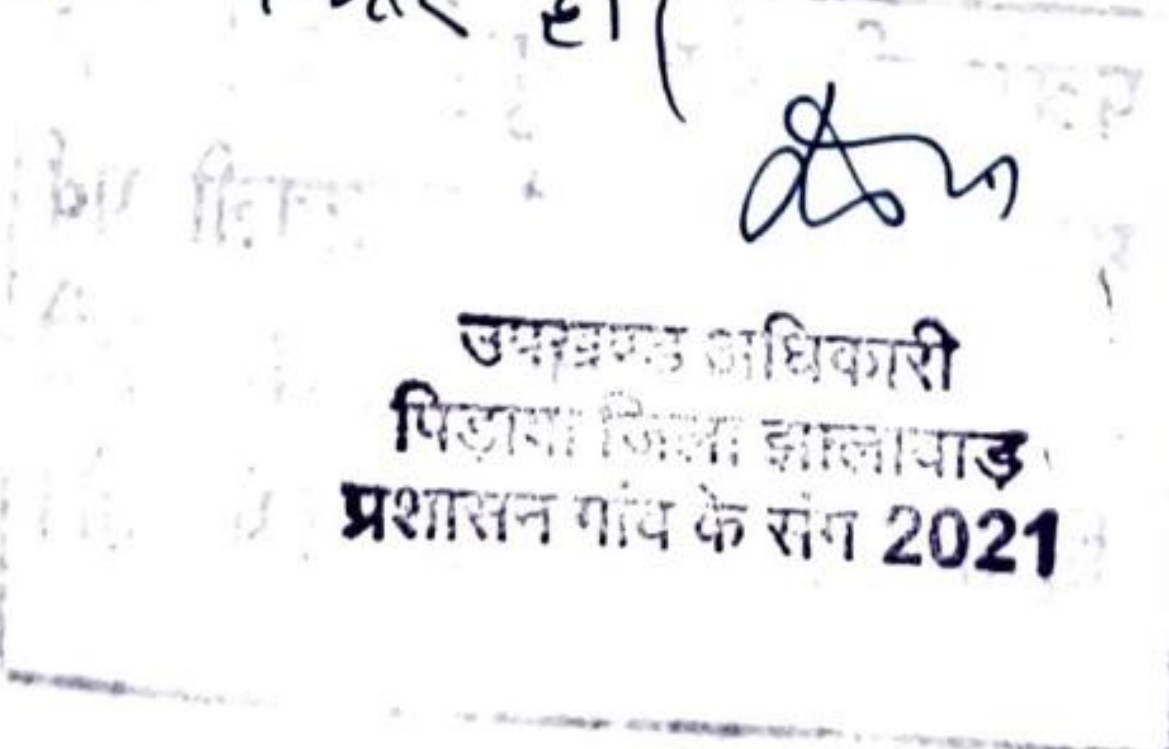 हो।
उपखण्ड अधिकारी
पिड़ावा जिला झालावाड़
प्रशासन गांव के संग 2021